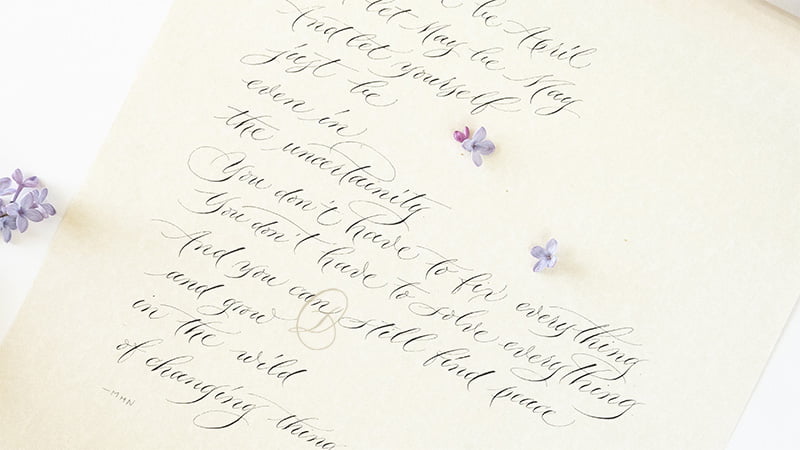 be April
let May be May
And let yourself
just be
even in
the uncertainity
You don't have to fix everything
You don't have to solve everything
And you can still find peace
and grow
in the wild
of changing
—MHN